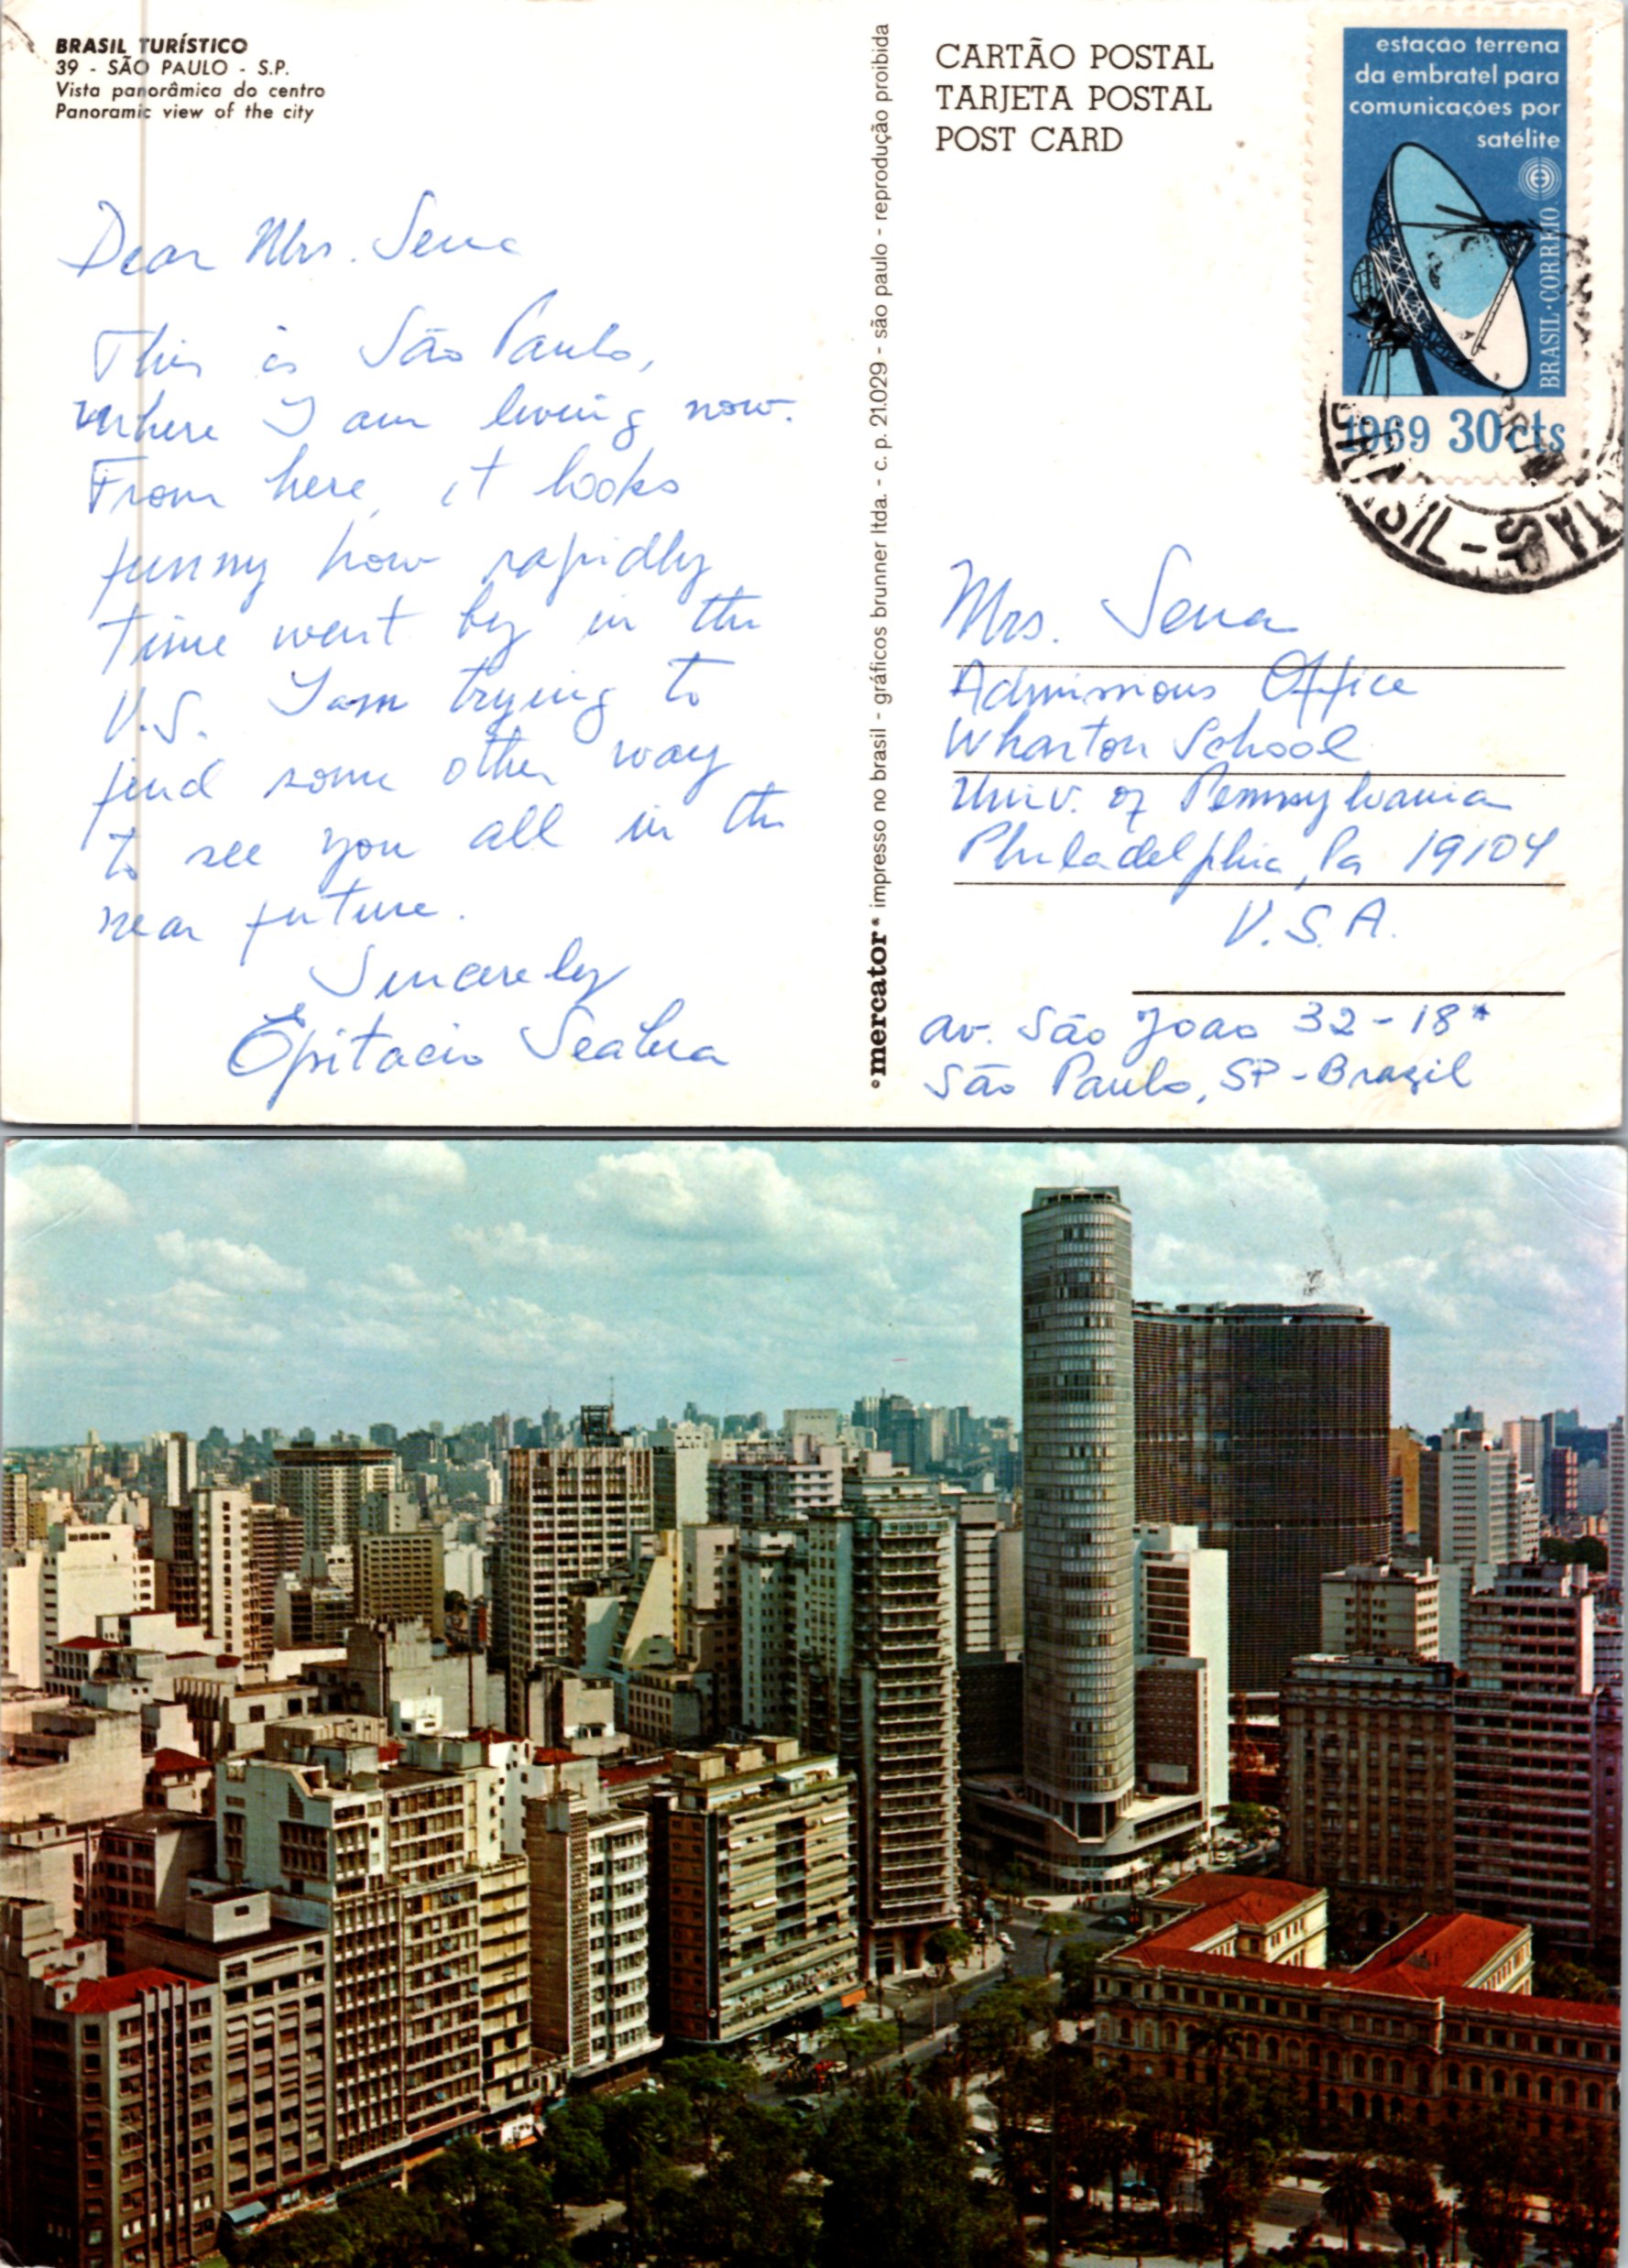 BRASIL TURÍSTICO
39 - SÃO PAULO - S.P.
Vista panorâmica do centro
Panoramic view of the city
Dear Mrs. Sena
This is São Paulo,
where I am living now.
From here, it looks
funny how rapidly
time went by in the
U.S. I am trying to
find some other way
to see you all in the
near future.
Sincerely
Epitacio Seabra
mercator
impresso no brasil - gráficos brunner ltda. - c. p. 21.029 - são paulo - reprodução proibida
CARTÃO POSTAL
TARJETA POSTAL
POST CARD
estação terrena
da embratel para
comunicações por
satélite
BRASIL·CORREIO
1969 30cts
BRASIL - S
Mrs. Sena
Admissions Office
Wharton School
Univ. of Pennsylvania
Philadelphia, Pa 19104
U.S.A.
av. São Joao 32-18*
São Paulo, SP-Brazil